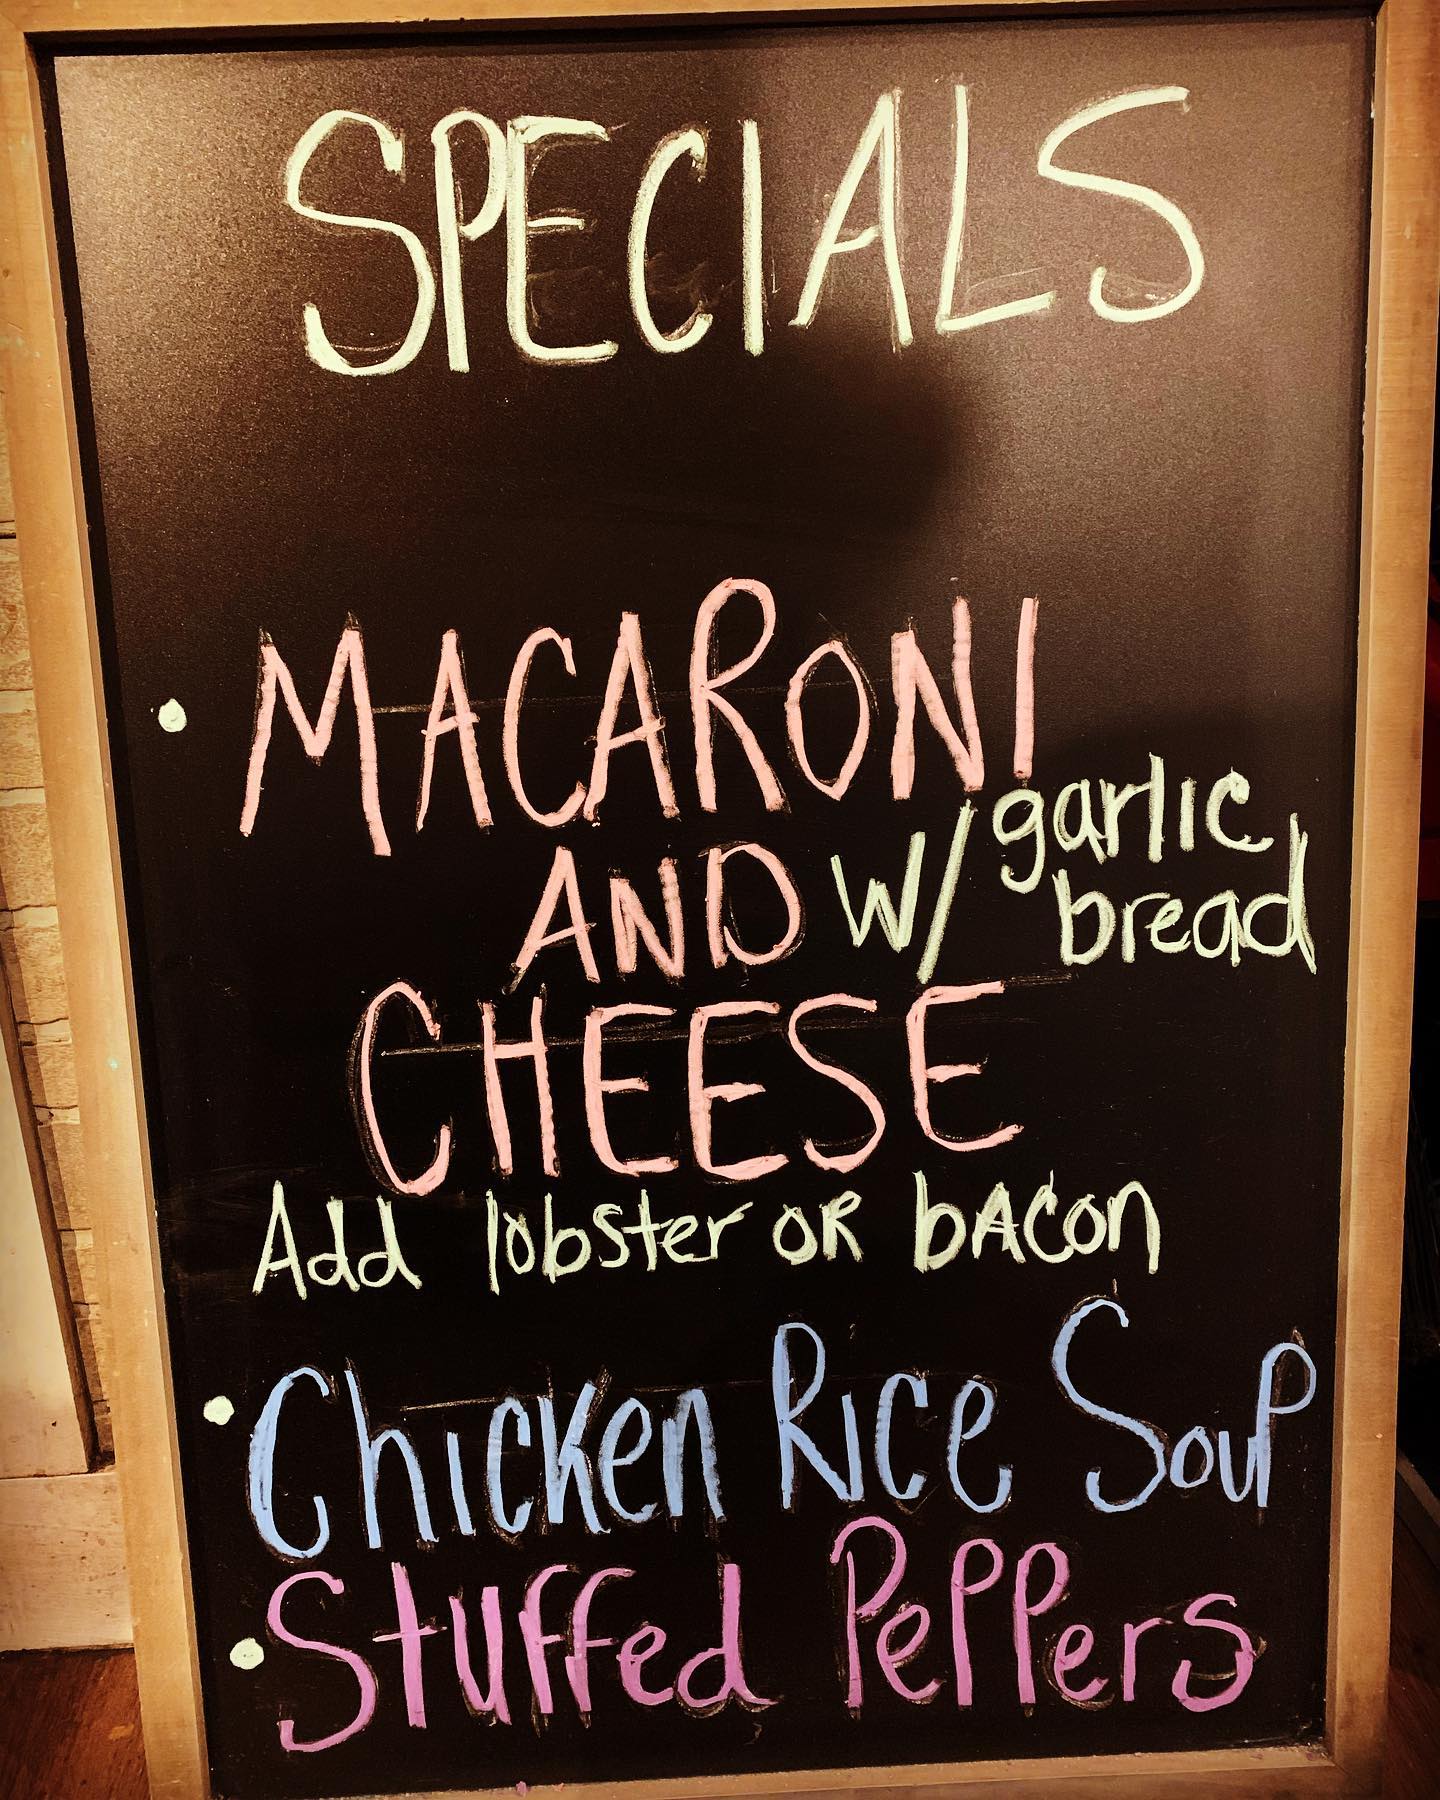 SPECIALS
MACARONI
AND W/ garlic bread
CHEESE
Add lobster OR bAcon
Chicken Rice Soup
Stuffed Peppers